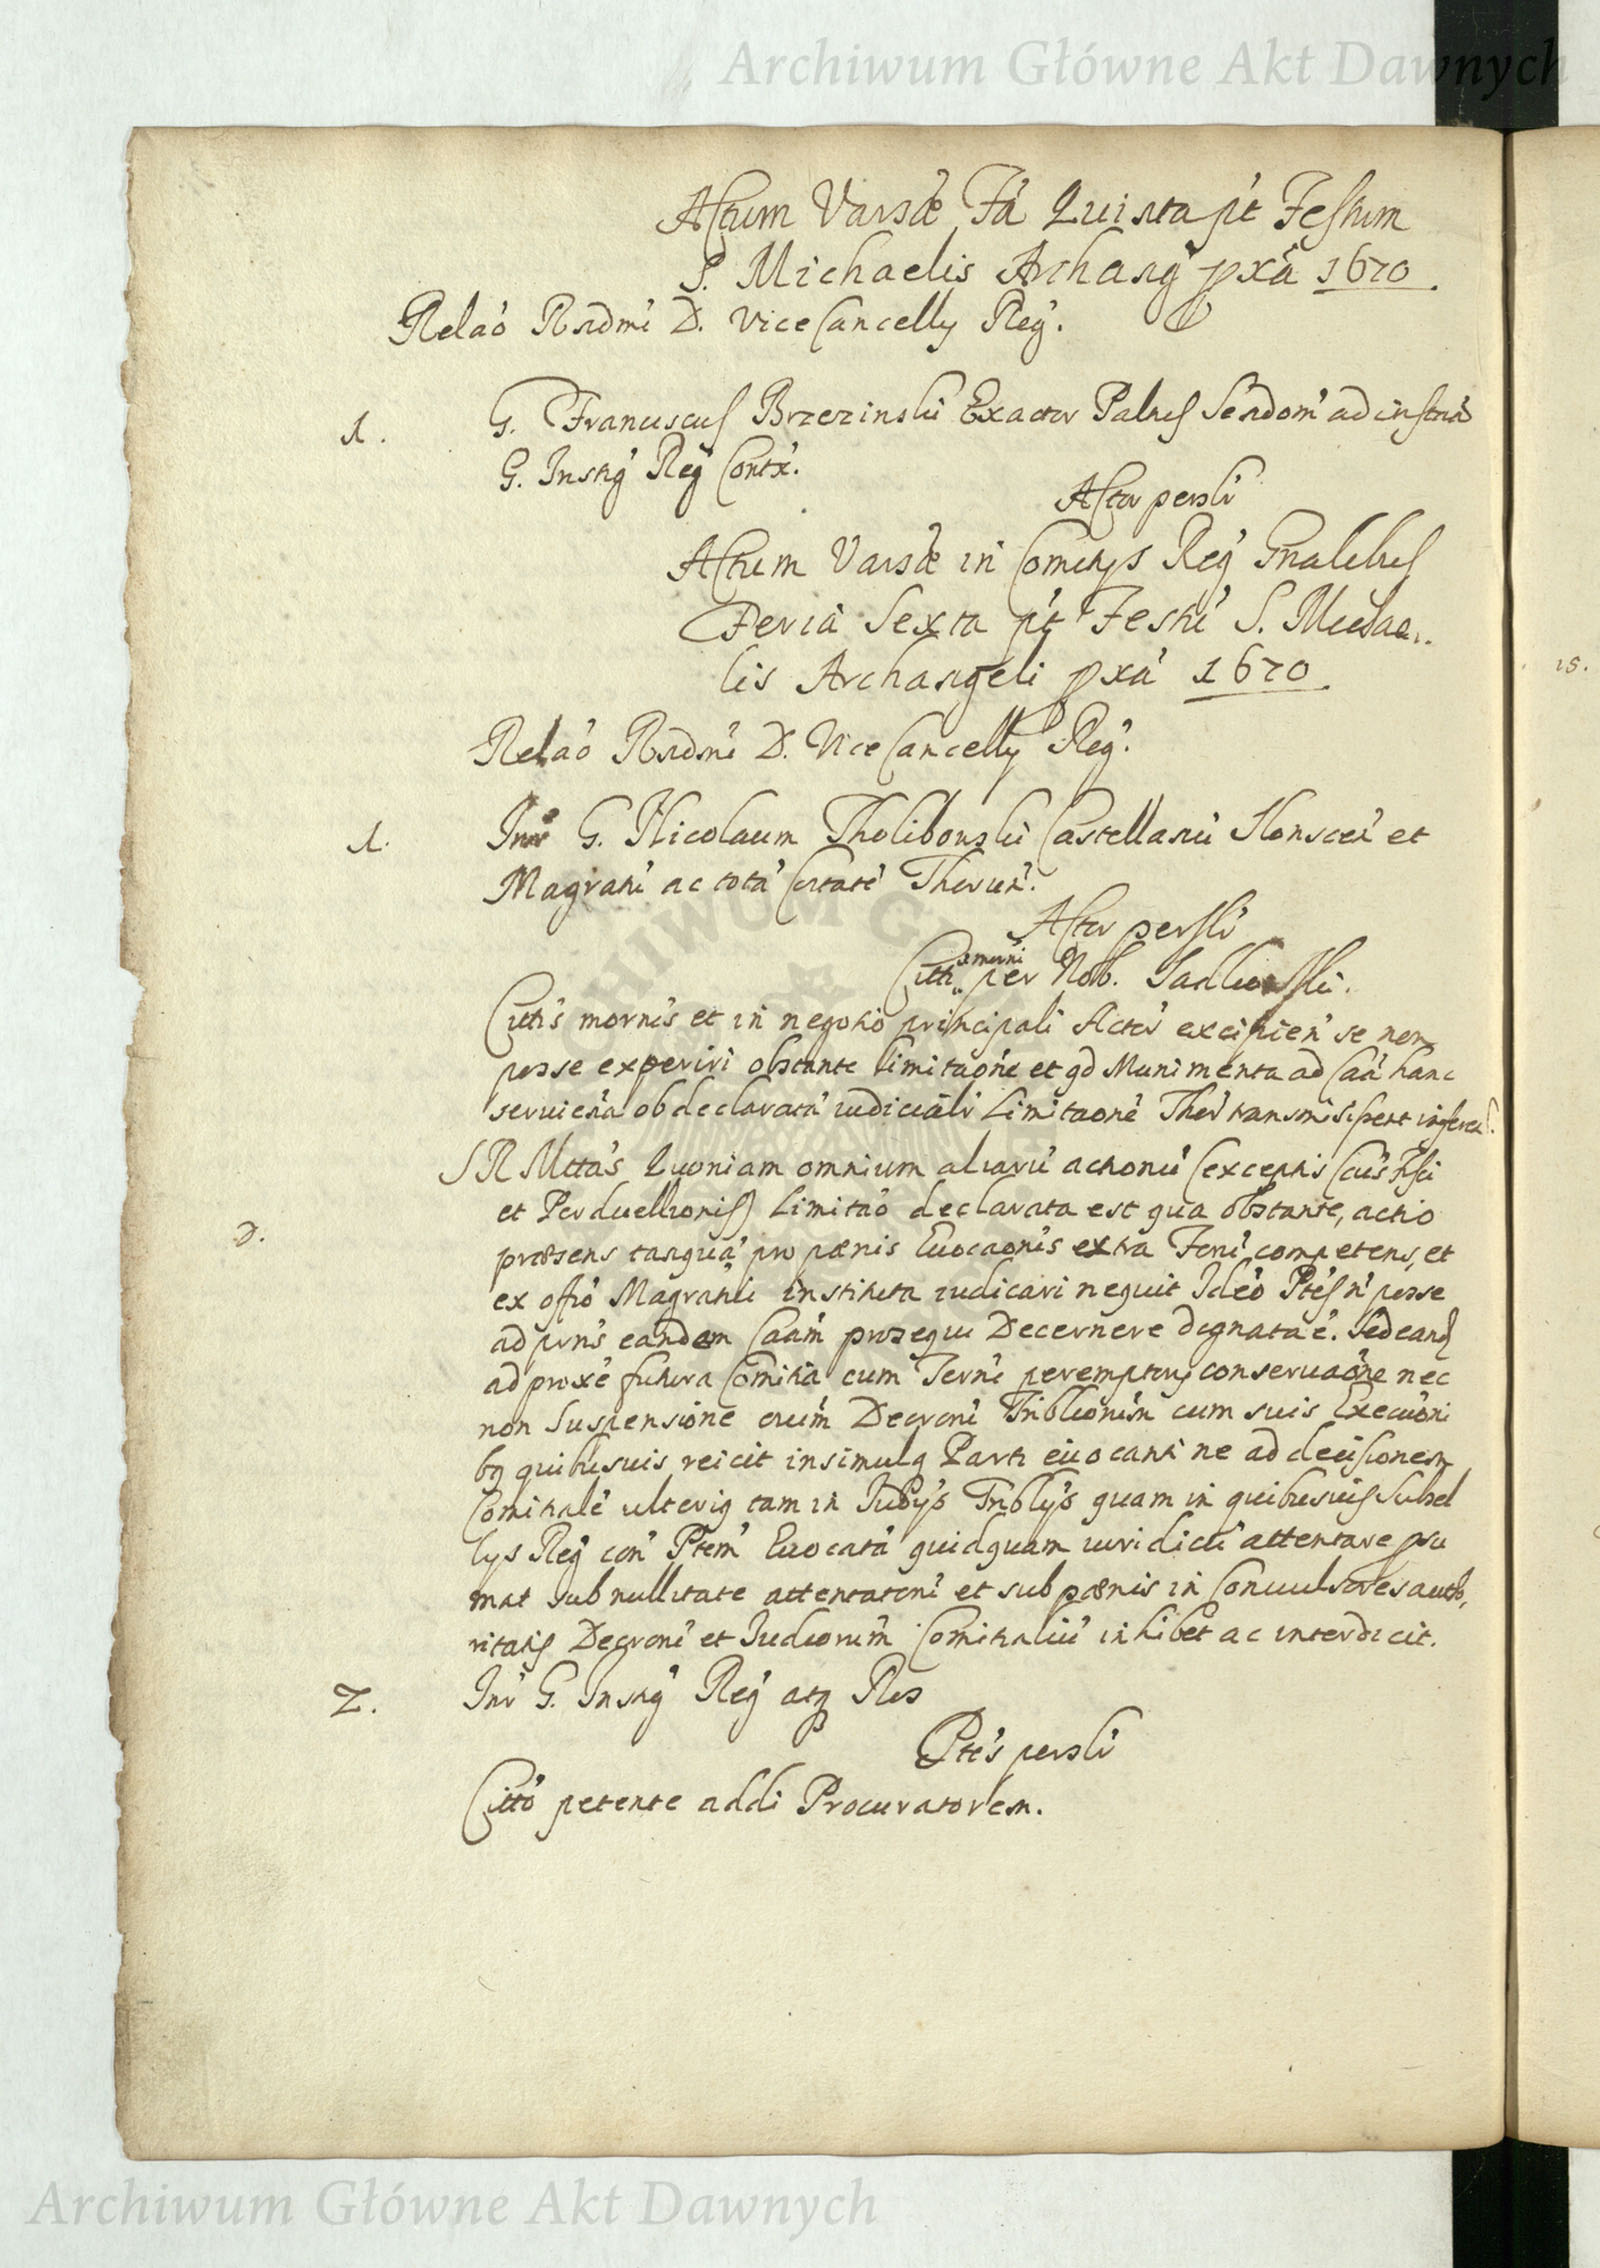 Archiwum Główne Akt Dawnych
Actum Varsae Fa Quinta pt Festum
S. Michaelis Archang pxa 1670.
Relao Rndmi D. Vice Cancelly Reg.
1. G. Franciscus Brzezinski Exactor Paltus Sendom ad instna
G. Instig Reg Contr.
Actor persli
Actum Varsae in Comitys Reg Gnalibus
Feria Sexta pt Festu S. Michae..
lis Archangeli pxa 1670.
Relao Rndmi D. Vice Cancelly Reg.
1. Inter G. Nicolaum Tholibowski Castellanu Slonscen et
Magratu ac tota Civitate Thorun.
Actor persli
Citti per Nob. 
15.
Cittis mornis et in negotio principali Actor excipien se non
posse experiri obstante limitaone et qd Munimenta ad Caa hanc
servientia ob declarata iudicialr Limitaone Thor transmisisset inferen.
S R Mttas Quoniam omnium aliaru actionu (exceptis Cais Fisci
et Perduellionis) Limitao declarata est qua obstante, actio
D. praesens tanqua pro paenis Evocaonis extra Foru competens, et
ex offio Magratuli instituta iudicari nequit Ideo Ptes n posse
ad prns eandem Caam prosequi Decernere dignata e. Sed eand
ad proxe futura Comitia cum Terni peremptory conservaone nec
non Suspensione oium Decroru Triblionim cum suis Execuoni
bq quibusvis reicit insimulq Parti evocanti ne ad decisionem
Comitiale ulteriq tam in Judys Triblys quam in quibusvis Subsel
lys Reg con Ptem Evocata quidquam iuridicu attentare prsu
mat sub nullitate attentatoru et sub paenis in Convulsores autho,
ritatis Decroru et Judiorum Comitialiu inhibet ac interdicit.
2. Inter G. Instig Reg atq Res
Ptes persli
Citto petente addi Procuratorem.
Archiwum Główne Akt Dawnych